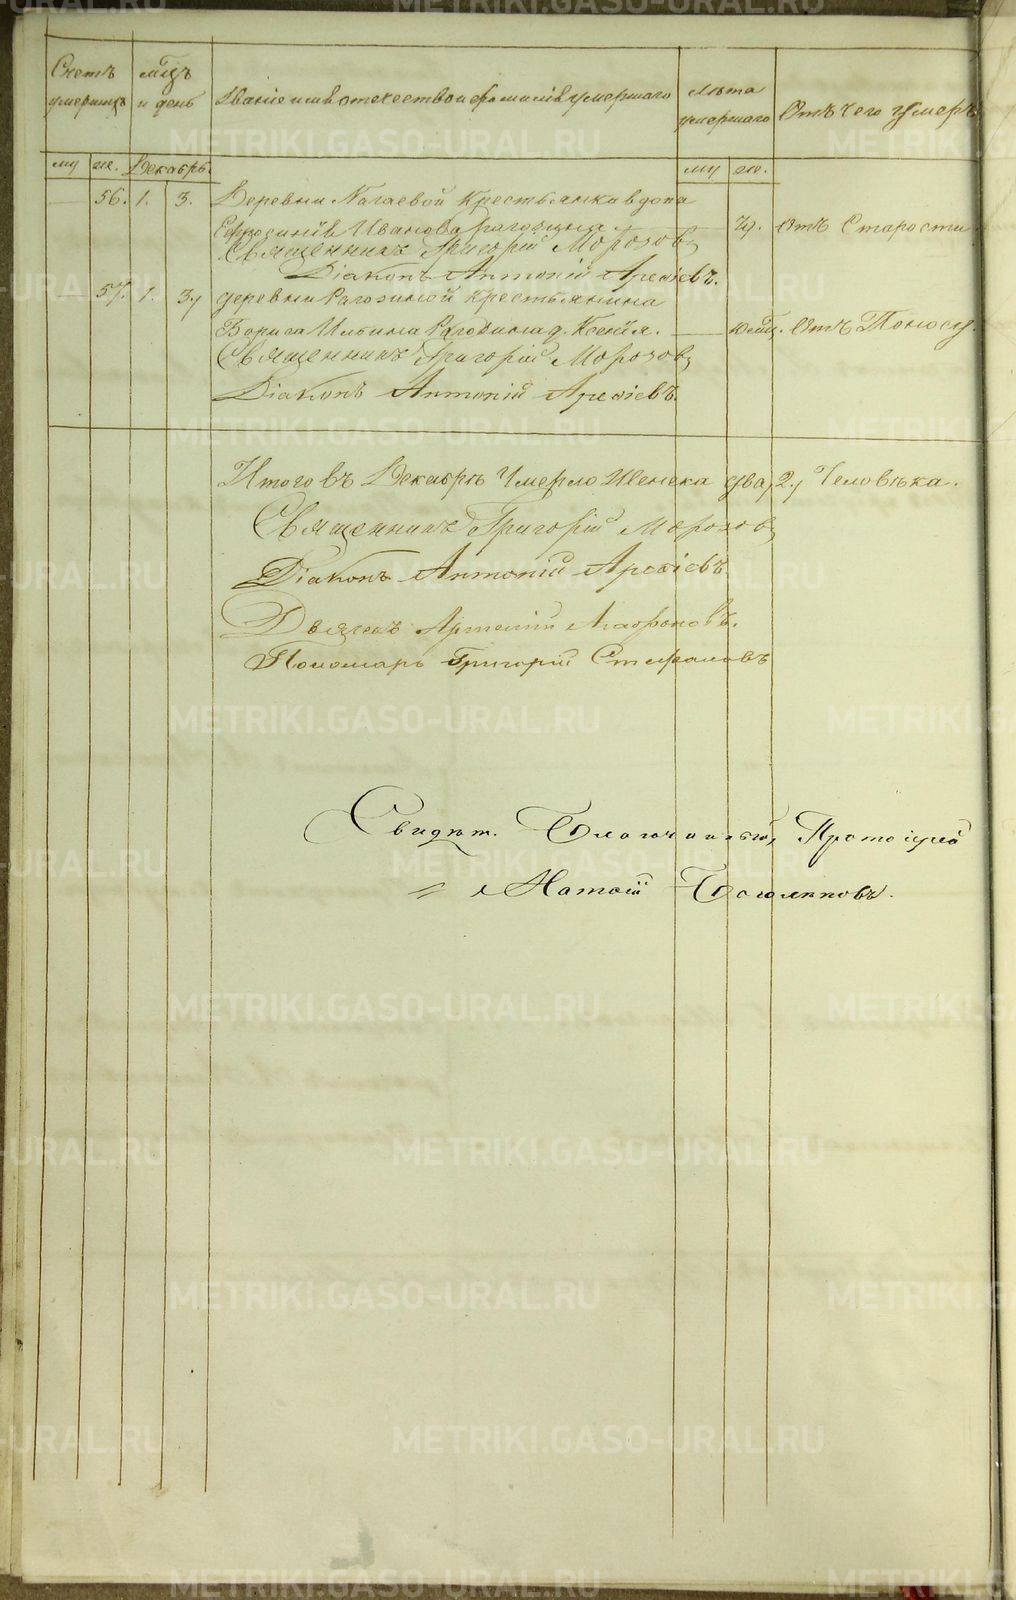 METRIKI.GASO-URAL.RU
Счетъ умершихъ
мцъ и день
Званіе имя отечество и фамилія умершаго
лѣта умершаго
Отъ чего умеръ
му же. Декабрь. му же.
56. 1. 3. Деревни Нагаевой Крестьянка вдова
Ефросинія Иванова Рагозина. Отъ Старости.
Священникъ Григорій Морозовъ
Діаконъ Антоній Арефіевъ.
57. 1. 3. деревни Рагозиной Крестьянина
Бориса Ильина Рагозина д. Ксенія. Отъ Поносу.
Священникъ Григорій Морозовъ
Діаконъ Антоній Арефіевъ.
Итого въ Декабрѣ Умерло Женска два, 2, Человѣка.
Священникъ Григорій Морозовъ
Діаконъ Антоній Арефіевъ
Дьячекъ Артемій Агафоновъ.
Пономарь Григорій Стефановъ
Свидѣт. Благочинный, Протоіерей